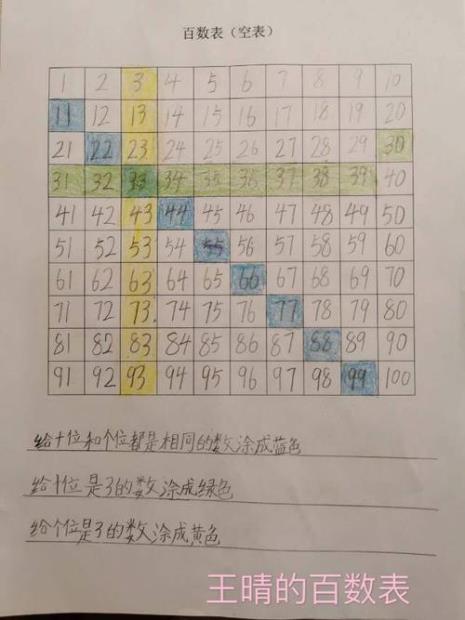 百数表（空表）
1 2 3 4 5 6 7 8 9 10
11 12 13 14 15 16 17 18 19 20
21 22 23 24 25 26 27 28 29 30
31 32 33 34 35 36 37 38 39 40
41 42 43 44 45 46 47 48 49 50
51 52 53 54 55 56 57 58 59 60
61 62 63 64 65 66 67 68 69 70
71 72 73 74 75 76 77 78 79 80
81 82 83 84 85 86 87 88 89 90
91 92 93 94 95 96 97 98 99 100
给十位和个位都是相同的数涂成蓝色
给十位是3的数涂成绿色
给个位是3的数涂成黄色
王晴的百数表